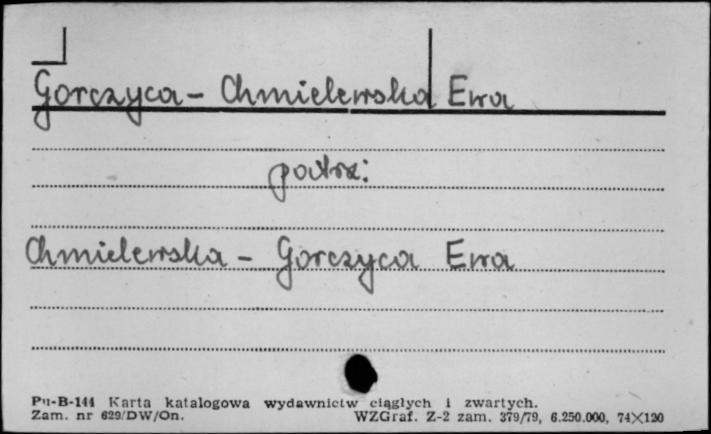 Gorczyca - Chmielewska Ewa
patrz:
Chmielewska - Gorczyca Ewa
Pu-B-144 Karta katalogowa wydawnictw ciągłych i zwartych.
Zam. nr 629/DW/On. WZGraf. Z-2 zam. 379/79, 6.250.000, 74×120